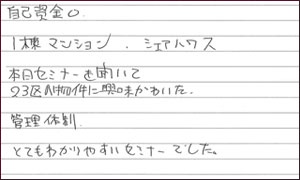 自己資金0.
1棟マンション.シェアハウス
本日セミナーを聞いて
23区内物件に興味がわいた.
管理体制.
とてもわかりやすいセミナーでした。